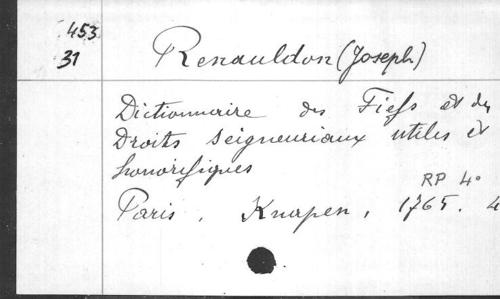 453
31
Renauldon (Joseph)
Dictionnaire des Fiefs et des
Droits seigneuriaux utiles et
honorifiques
RP 4°
Paris, Knapen, 1765. 4